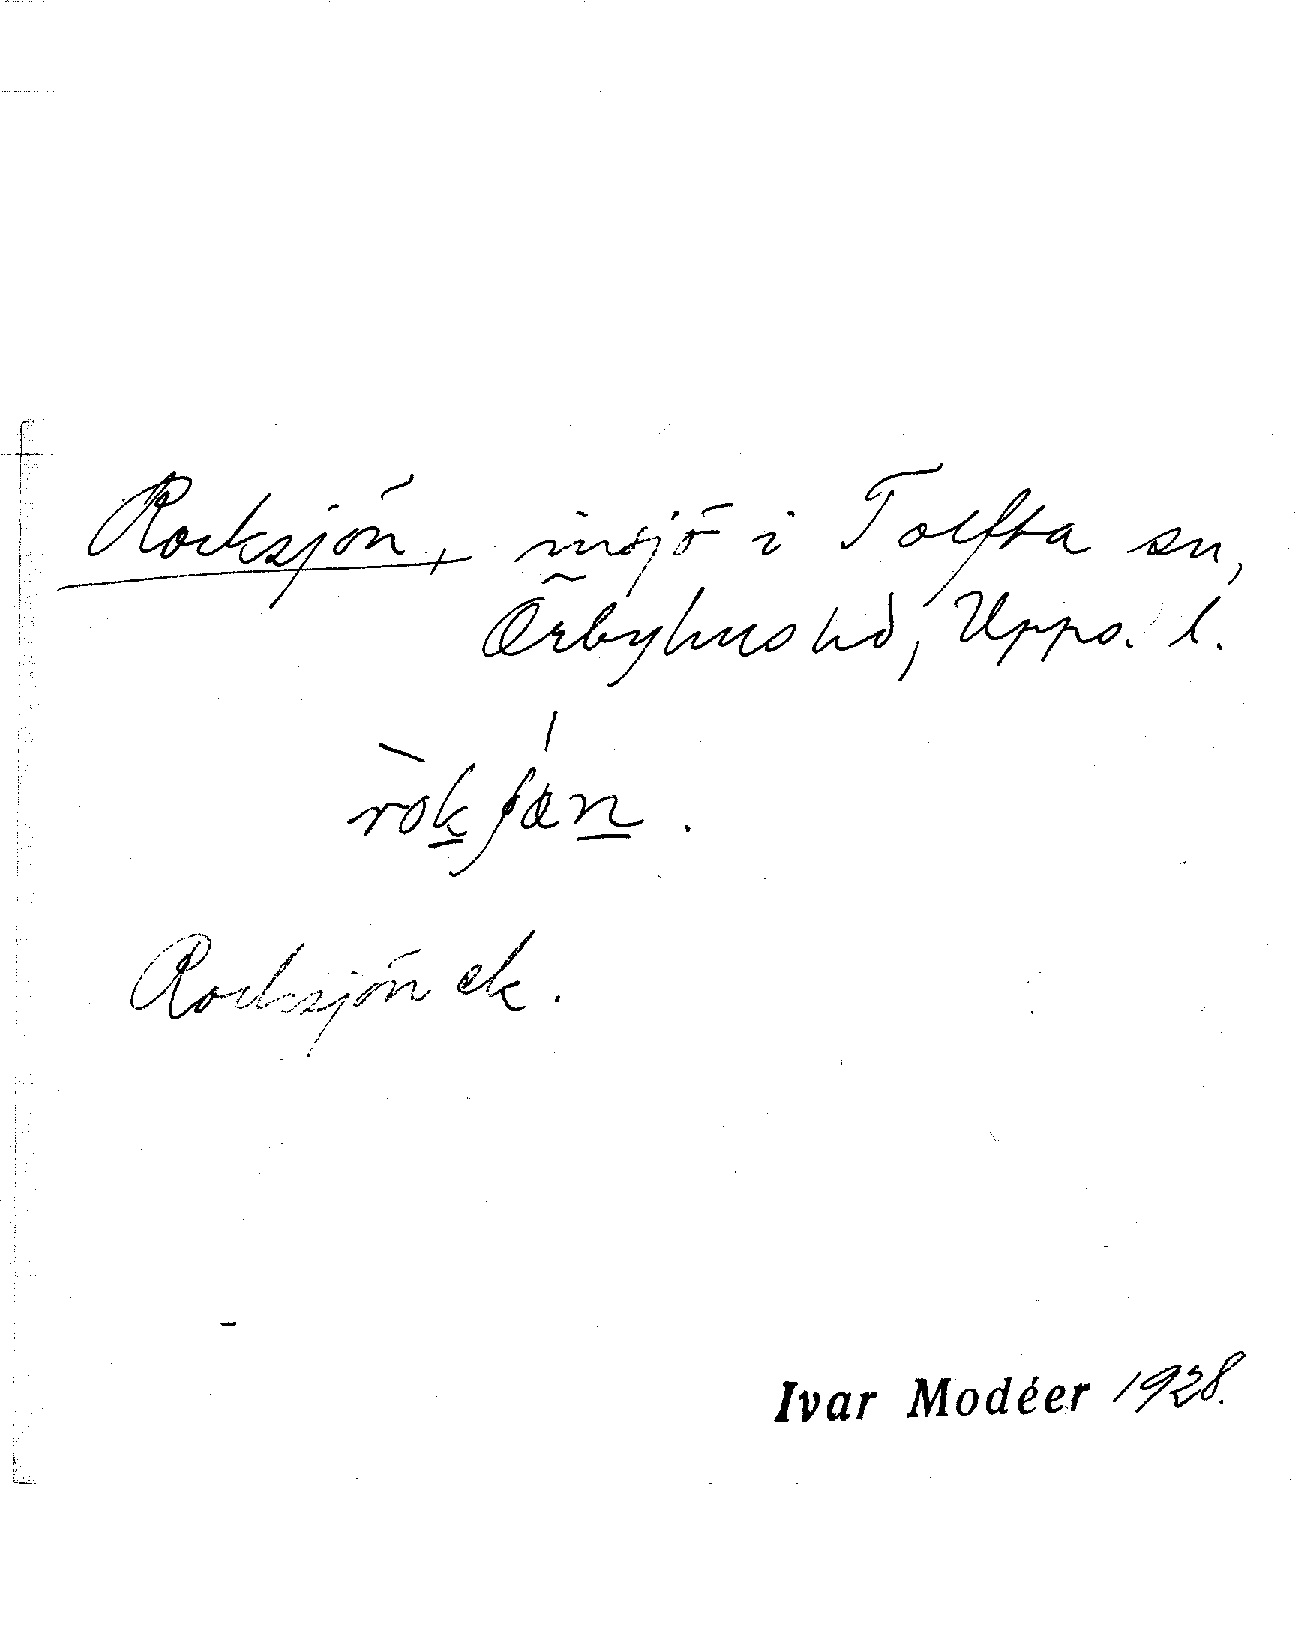 Rocksjön, insjö i Tolfta sn,
Örbyhus hd, Upps. l.
ròkʃæ̇n.
Rocksjön ek.
Ivar Modéer 1928.